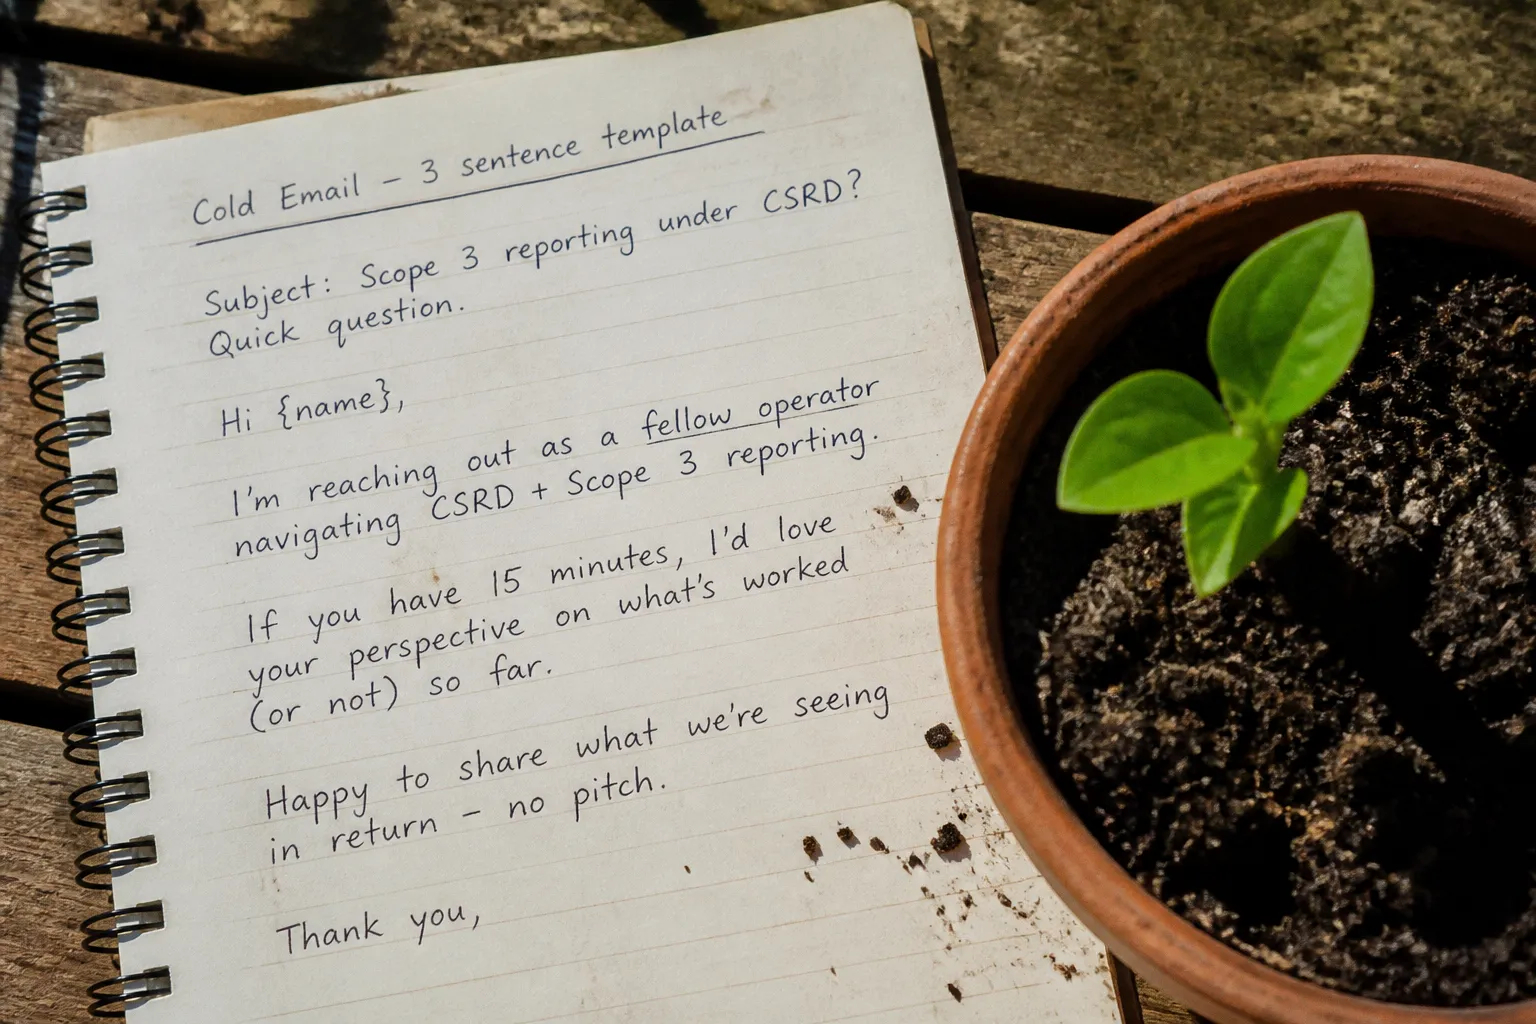 Cold Email – 3 sentence template
Subject: Scope 3 reporting under CSRD?
Quick question.
Hi {name},
I'm reaching out as a fellow operator
navigating CSRD + Scope 3 reporting.
If you have 15 minutes, I'd love
your perspective on what's worked
(or not) so far.
Happy to share what we're seeing
in return – no pitch.
Thank you,